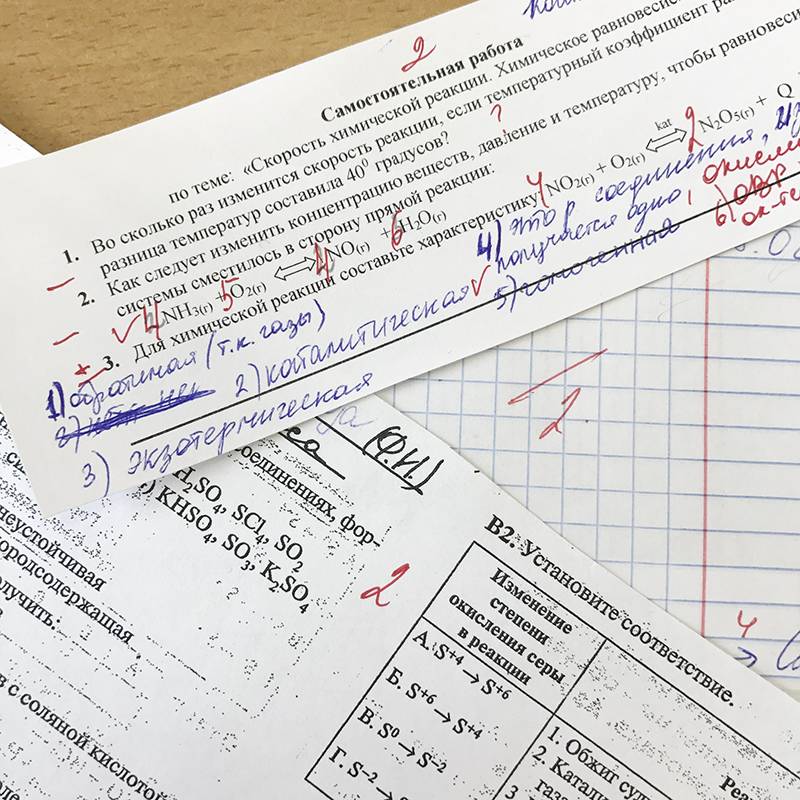 2
Самостоятельная работа
по теме: «Скорость химической реакции. Химическое равновесие
1. Во сколько раз изменится скорость реакции, если температурный коэффициент
разница температур составила 40⁰ градусов? ?
2. Как следует изменить концентрацию веществ, давление и температуру, чтобы равновесие
системы сместилось в сторону прямой реакции:
4NH₃(г) + 5O₂(г) ⇄ 4NO(г) + 6H₂O(г)
3. Для химической реакции составьте характеристику: 4NO₂(г) + O₂(г) kat ⇄ 2N₂O₅(г) + Q
1) обратимая (т.к. газы)
2) каталитическая
3) экзотермическая
4) этор соединения, из
получается одно,
5) гомогенная
6) ОВР
ок-
2
(Ф.И.)
оединениях, фор-
H₂SO₄, SCl₄, SO₂
) KHSO₄, SO₃, K₂SO₄
неустойчивая
ородсодержащая
олучить:
в с соляной кислотой
2
В2. Установите соответствие.
Изменение
степени
окисления серы
в реакции
А. S⁺⁴ → S⁺⁶
Б. S⁺⁶ → S⁺⁴
В. S⁰ → S⁻²
Г. S⁻² → S
Реа
1. Обжиг сул
2. Катали
газ
3
4